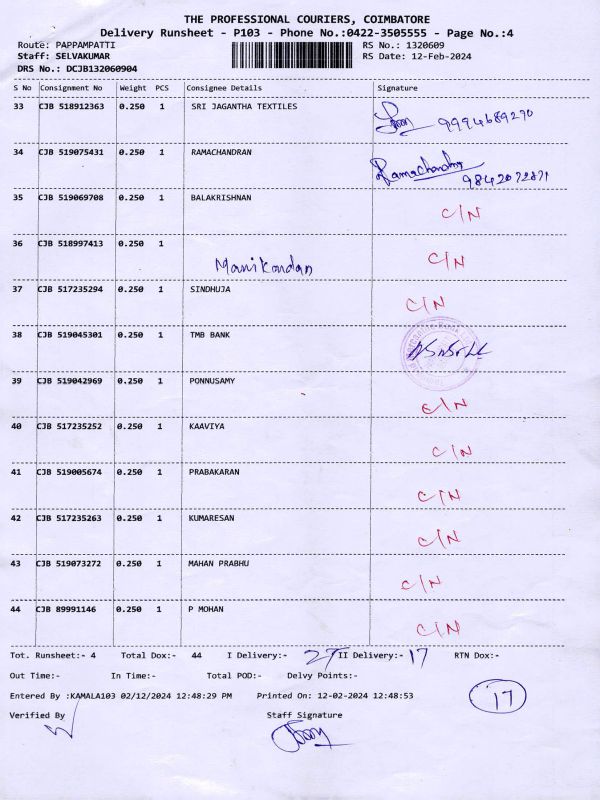 THE PROFESSIONAL COURIERS, COIMBATORE
Delivery Runsheet - P103 - Phone No.:0422-3505555 - Page No.:4
Route: PAPPAMPATTI RS No.: 1320609
Staff: SELVAKUMAR RS Date: 12-Feb-2024
DRS No.: DCJB132060904
S No Consignment No Weight PCS Consignee Details Signature
33 CJB 518912363 0.250 1 SRI JAGANTHA TEXTILES 9994689270
34 CJB 519075431 0.250 1 RAMACHANDRAN Ramachandran
9842072871
35 CJB 519069708 0.250 1 BALAKRISHNAN C/N
36 CJB 518997413 0.250 1 C/N
Manikandan
37 CJB 517235294 0.250 1 SINDHUJA C/N
38 CJB 519045301 0.250 1 TMB BANK
39 CJB 519042969 0.250 1 PONNUSAMY C/N
40 CJB 517235252 0.250 1 KAAVIYA C/N
41 CJB 519005674 0.250 1 PRABAKARAN C/N
42 CJB 517235263 0.250 1 KUMARESAN C/N
43 CJB 519073272 0.250 1 MAHAN PRABHU C/N
44 CJB 89991146 0.250 1 P MOHAN C/N
Tot. Runsheet:- 4 Total Dox:- 44 I Delivery:- 27 II Delivery:- 17 RTN Dox:-
Out Time:- In Time:- Total POD:- Delvy Points:-
Entered By :KAMALA103 02/12/2024 12:48:29 PM Printed On: 12-02-2024 12:48:53
17
Verified By Staff Signature